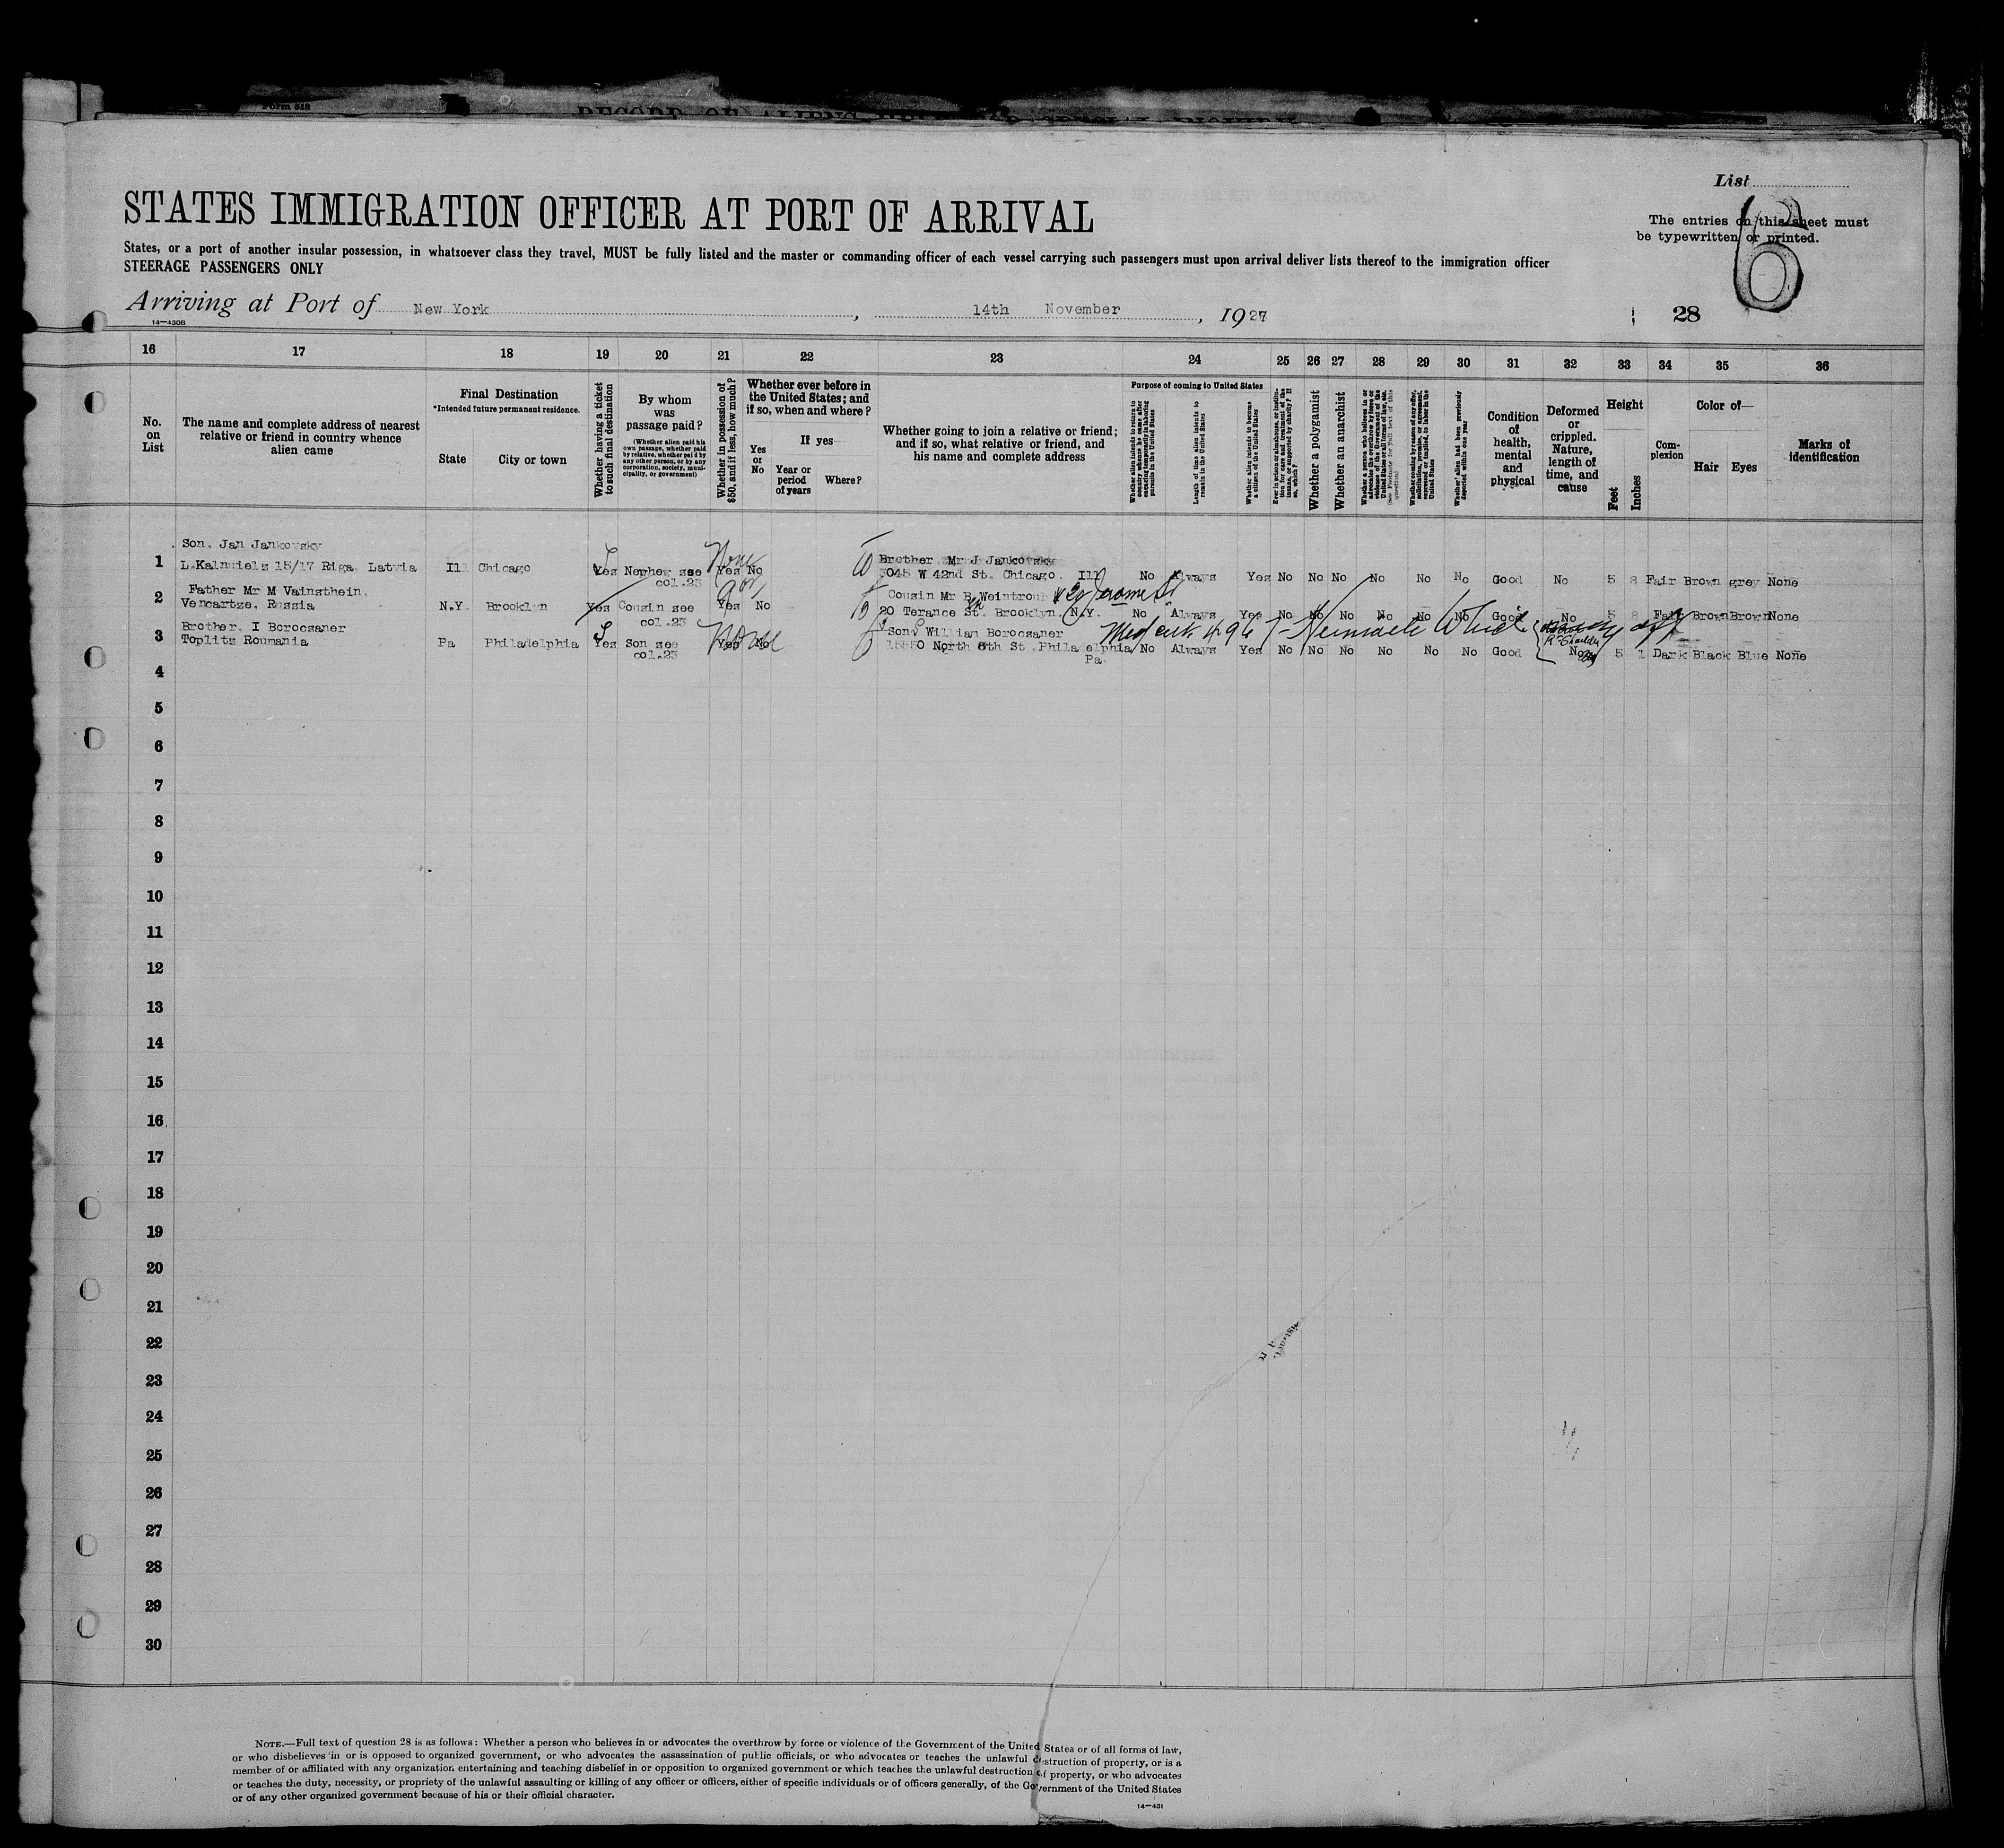 Form 518
RECORD OF ALIENS HELD FOR SPECIAL INQUIRY
List
STATES IMMIGRATION OFFICER AT PORT OF ARRIVAL
The entries on this sheet must
be typewritten or printed.
States, or a port of another insular possession, in whatsoever class they travel, MUST be fully listed and the master or commanding officer of each vessel carrying such passengers must upon arrival deliver lists thereof to the immigration officer
STEERAGE PASSENGERS ONLY
Arriving at Port of New York, 14th November, 1927
14-430B
28
16 17 18 19 20 21 22 23 24 25 26 27 28 29 30 31 32 33 34 35 36
No. on List
The name and complete address of nearest relative or friend in country whence alien came
Final Destination
*Intended future permanent residence.
State
City or town
Whether having a ticket to such final destination
By whom was passage paid?
(Whether alien paid his own passage, whether paid by relative, whether paid by any other person, or by any corporation, society, municipality, or government)
Whether in possession of $50, and if less, how much?
Whether ever before in the United States; and if so, when and where?
Yes or No
If yes—
Year or period of years
Where?
Whether going to join a relative or friend; and if so, what relative or friend, and his name and complete address
Purpose of coming to United States
Whether alien intends to return to country whence he came after engaging temporarily in laboring pursuits in the United States
Length of time alien intends to remain in the United States
Whether alien intends to become a citizen of the United States
Ever in prison or almshouse, or institution for care and treatment of the insane, or supported by charity? If so, which?
Whether a polygamist
Whether an anarchist
Whether a person who believes in or advocates the overthrow by force or violence of the Government of the United States or all forms of law, etc.
(See Footnote for full text of this question)
Whether coming by reason of any offer, solicitation, promise, or agreement, expressed or implied, to labor in the United States
Whether alien had been previously deported within one year
Condition of health, mental and physical
Deformed or crippled. Nature, length of time, and cause
Height
Feet
Inches
Complexion
Color of—
Hair
Eyes
Marks of identification
Son, Jan Jankovsky
1 L.Kalnuiels 15/17 Riga, Latvia Ill Chicago Yes Nephew see col.23 Yes None No Brother Mr J Jankovsky
3045 W 42nd St. Chicago. Ill No Always Yes No No No No No No Good No 5 8 Fair Brown grey None
Father Mr M Vainsthein,
2 Vencartze, Russia N.Y. Brooklyn Yes Cousin see col.23 Yes No Cousin Mr B Weintroub
20 Terance St. Brooklyn. N.Y. No Always Yes No No No No No No Good No 5 8 Fair Brown Brown None
Jerome St
Brother, I Borocsaner
3 Toplitz Roumania Pa Philadelphia Yes Son see col.23 Yes None No Son William Borocsaner
15550 North 8th St Philadelphia Pa. No Always Yes No No No No No No Good No 5 1 Dark Black Blue None
Med cert
4
5
6
7
8
9
10
11
12
13
14
15
16
17
18
19
20
21
22
23
24
25
26
27
28
29
30
NOTE.—Full text of question 28 is as follows: Whether a person who believes in or advocates the overthrow by force or violence of the Government of the United States or of all forms of law,
or who disbelieves in or is opposed to organized government, or who advocates the assassination of public officials, or who advocates or teaches the unlawful destruction of property, or is a
member of or affiliated with any organization entertaining and teaching disbelief in or opposition to organized government or which teaches the unlawful destruction of property, or who advocates
or teaches the duty, necessity, or propriety of the unlawful assaulting or killing of any officer or officers, either of specific individuals or of officers generally, of the Government of the United States
or of any other organized government because of his or their official character.
14-431